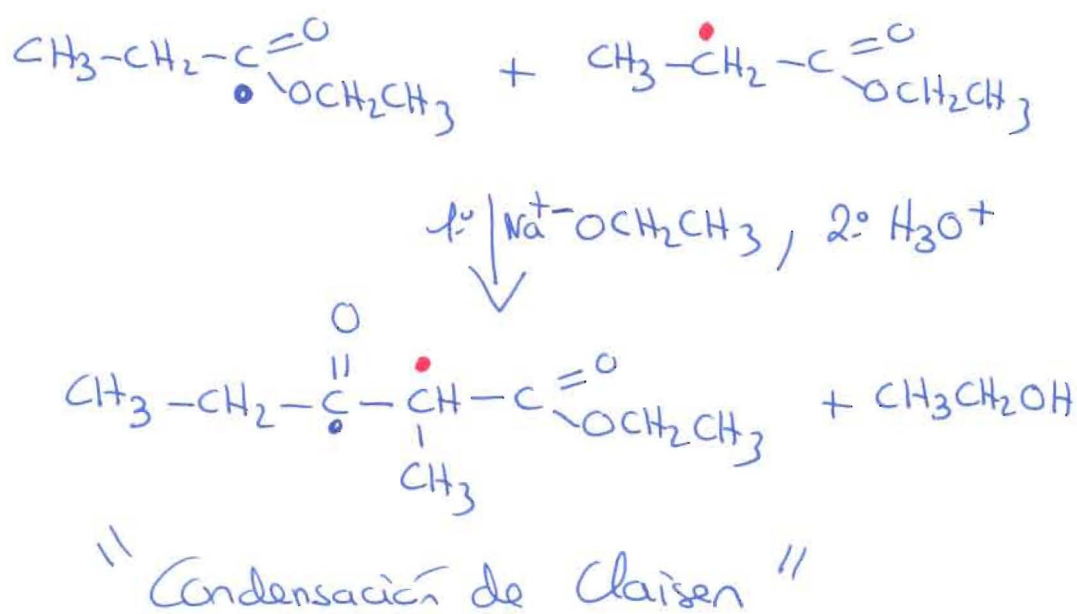 CH3-CH2-C=O OCH2CH3 + CH3-CH2-C=O OCH2CH3
1º Na+-OCH2CH3, 2º H3O+
O
CH3-CH2-C-CH-C=O OCH2CH3 + CH3CH2OH
CH3
"Condensación de Claisen"